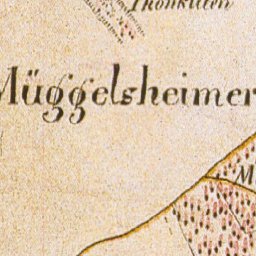 Thonkuten
Müggelsheimer
M